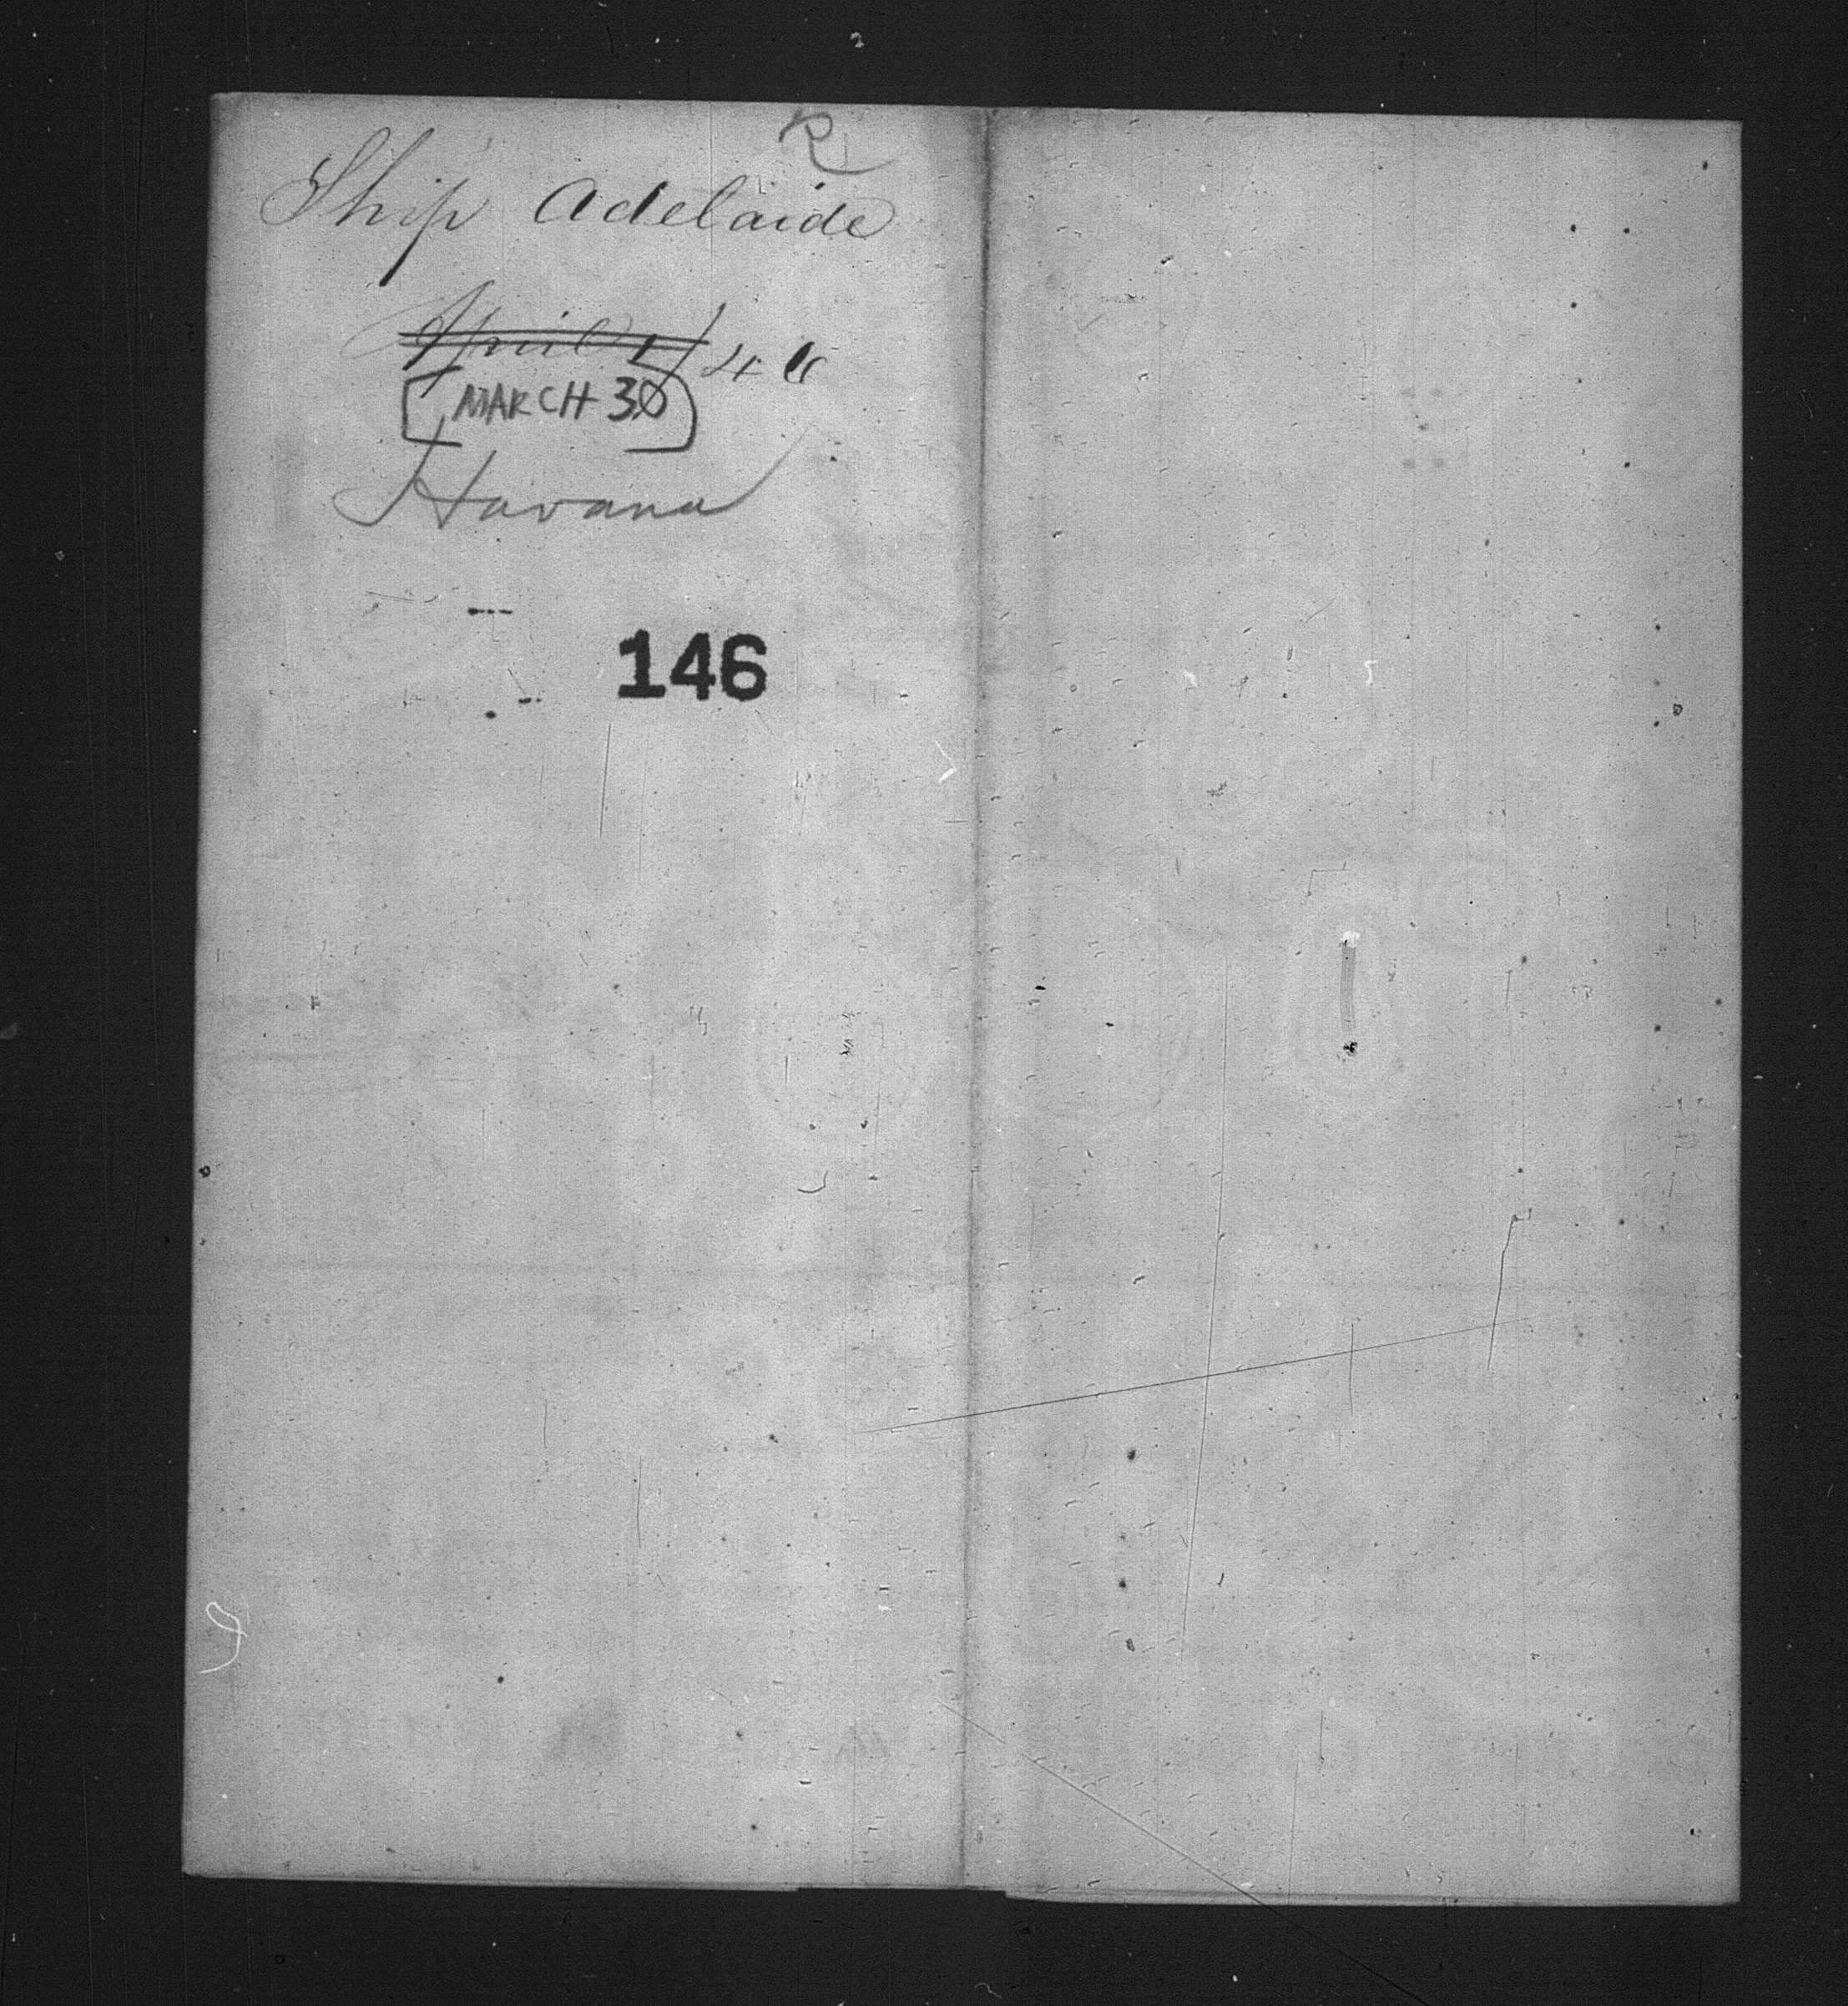 R
Ship Adelaide
April 1/46
MARCH 30
Havana
146